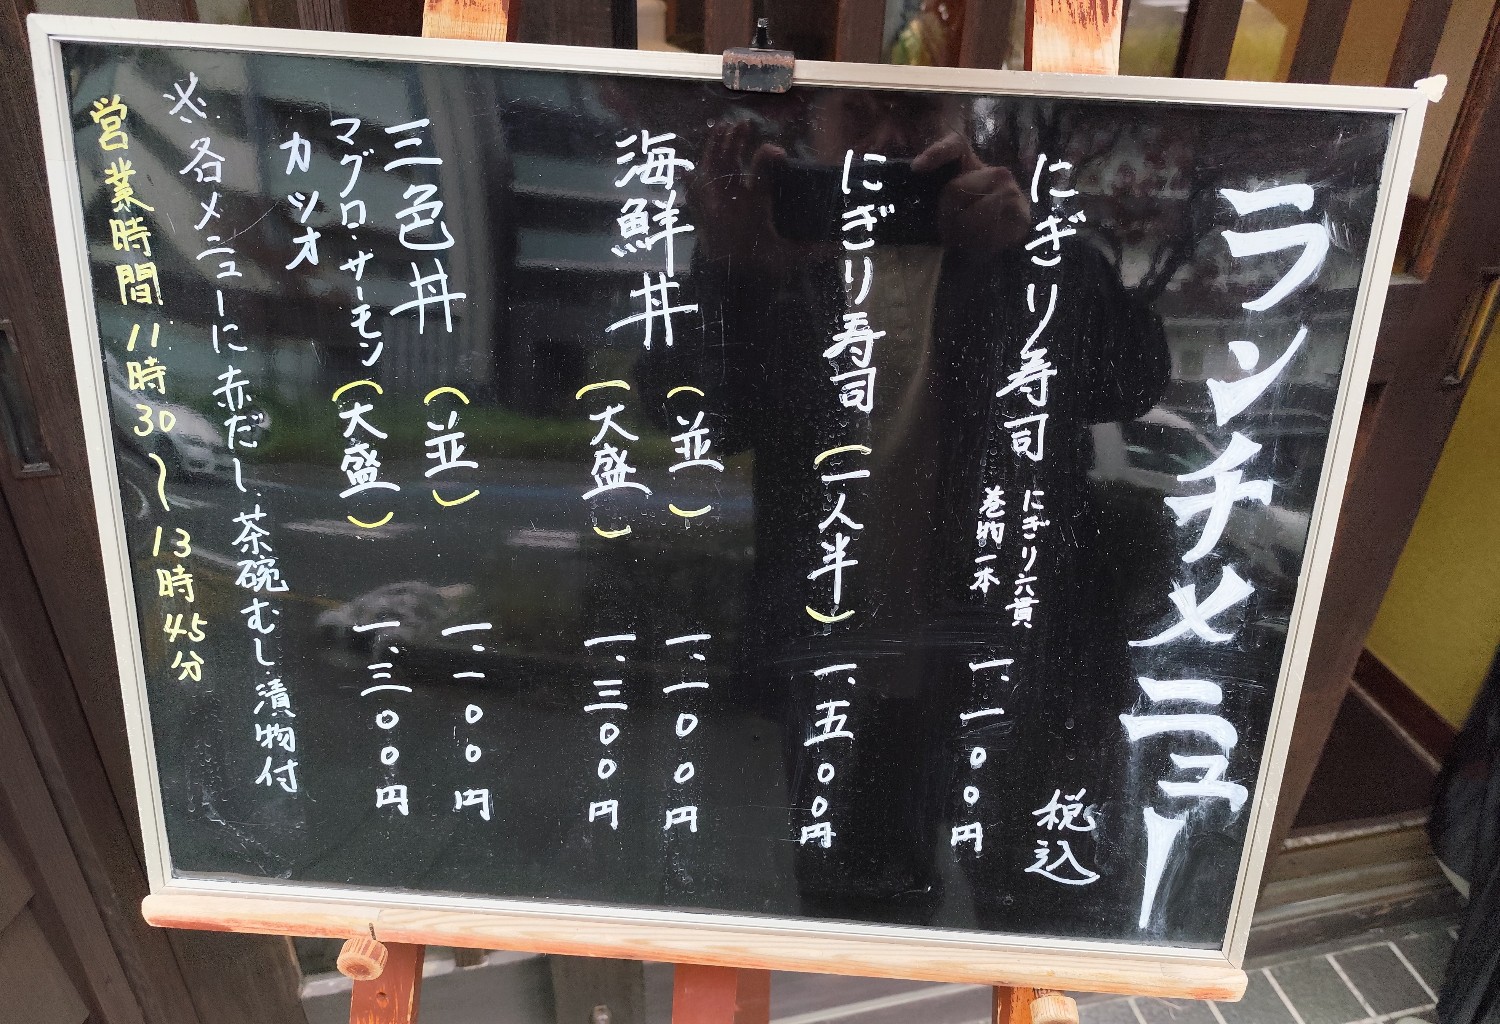 ランチメニュー
税込
にぎり寿司 にぎり六貫 巻物一本 一、一〇〇円
にぎり寿司(一人半) 一、五〇〇円
海鮮丼 (並) 一、一〇〇円
(大盛) 一、三〇〇円
三色丼 (並) 一、一〇〇円
マグロ・サーモン (大盛) 一、三〇〇円
カツオ
※各メニューに赤だし、茶碗むし 漬物付
営業時間 11時30〜13時45分